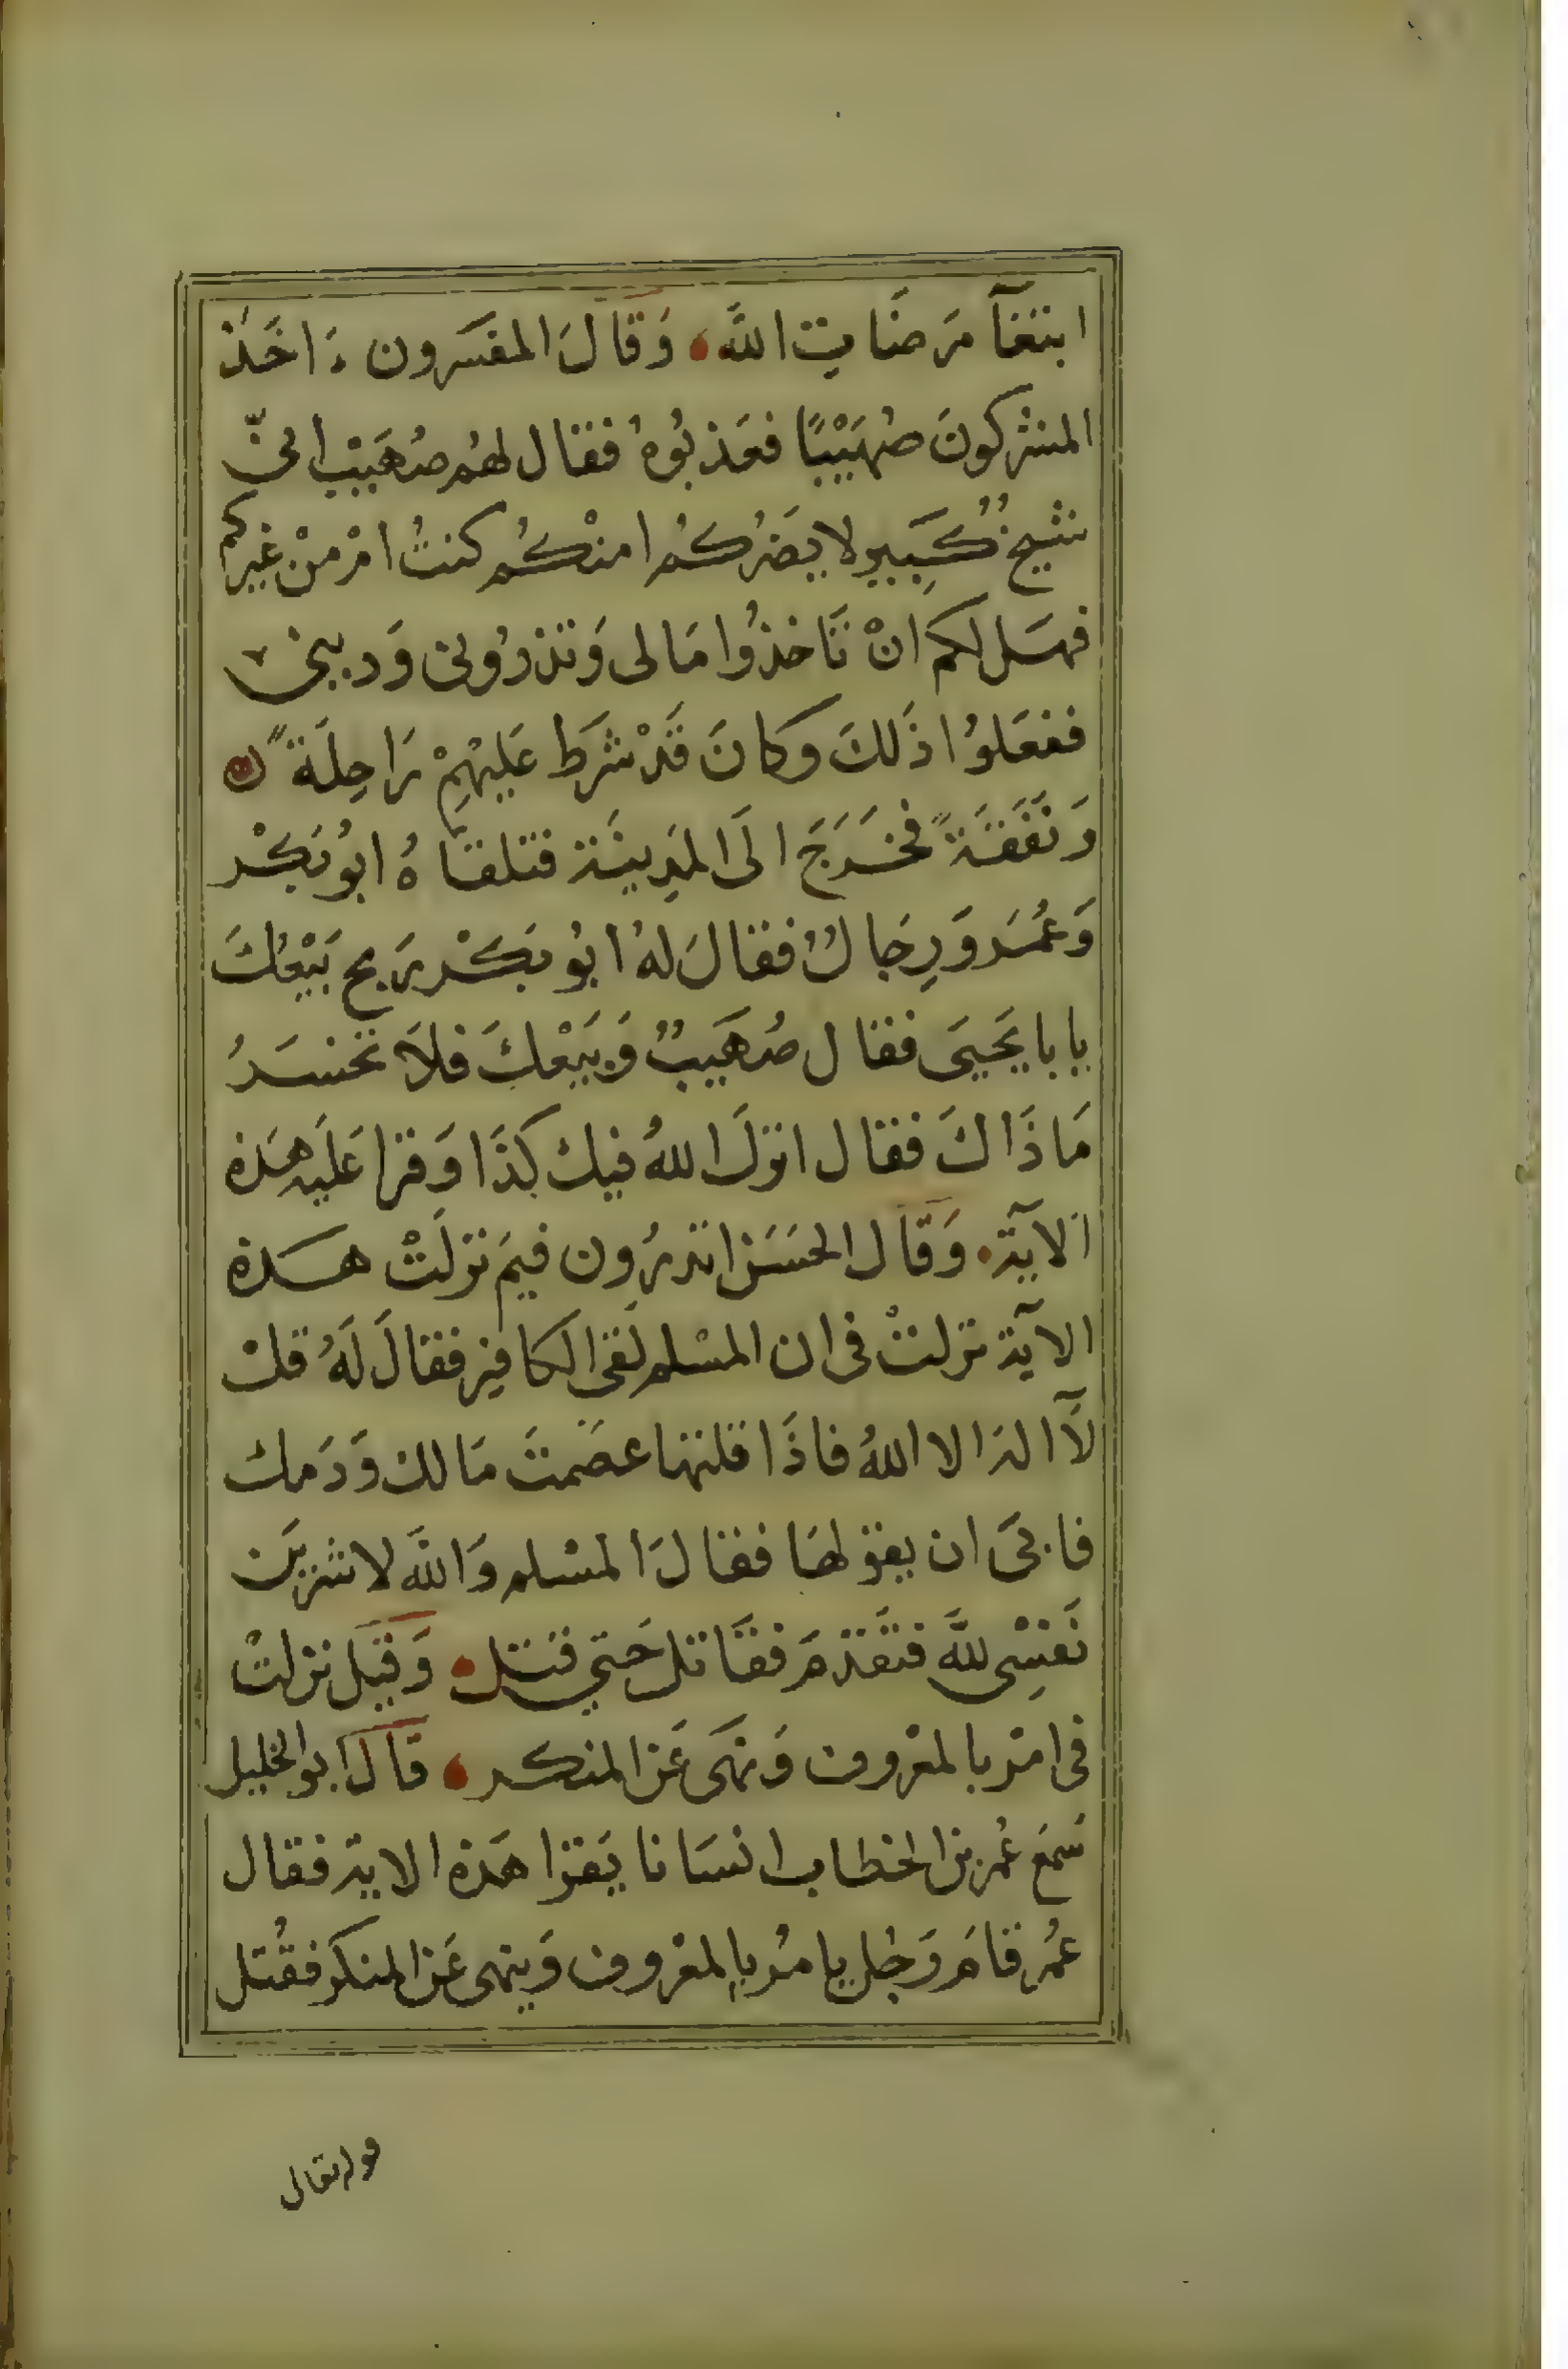 ابتغآ مَرضَات اللَّه وَقَالَ المفسَرون اخَذ
المشركونَ صُهَيْبًا فعَذبُوهُ فقال لهُم صُهَيْب انىّ
شيخ كَبِير لا يَضرُكُم امنْكُم كنتُ امْ مِنْ غيركم
فهَل لكم انْ تَاخذُوا مَالى وَتذرُونى وَدينى
ففعَلوُا ذَلكَ وكانَ قَدْ شرَط عَليْهِمْ رَاحِلَةً
وَنفَقَةً فخَرَجَ الَى المَدِينَة فتلقاهُ ابوُ بَكْر
وَعُمَر وَرِجَالٌ فقالَ لهُ ابُو بَكْر رَبح بَيْعُكَ
يابا يَحيىَ فقال صُهَيبٌ وَبَيْعْكَ فلاَ تخسَرُ
مَا ذَاكَ فقال انزلَ اللهُ فيك كذَا وَقرا عَليَه هَذه
الآية وَقَال الحسَن اتدرُون فيمَ نزلَتْ هَذه
الآية نزلتْ فى ان المسْلم لَقى الكافِر فقالَ لَهُ قلْ
لآ اله الا اللهُ فاذَا قلتها عصَمتَ مَالك وَدَمك
فابىَ ان يقولهَا فقالَ المسْلم وَاللَّه لاشريَن
نَفسِى للَّه فتقَدمَ فقَاتل حَتي قتل وَقيَل نزلتْ
فى امْر بالمعْروف وَنهَى عَن المنكر قَالَ ابو الخليل
سَمعَ عُمر بن الخطاب انسَانا يَقرا هَذه الاية فقال
عُمر قامَ وَجُل يامُر بالمعْروف وَينهى عَن المنكر فقُتل